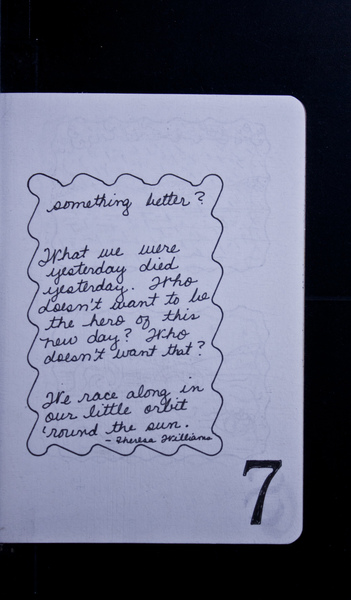 something better?
What we were
yesterday died
yesterday. Who
doesn't want to be
the hero of this
new day? Who
doesn't want that?
We race along in
our little orbit
'round the sun.
- Theresa Williams
7